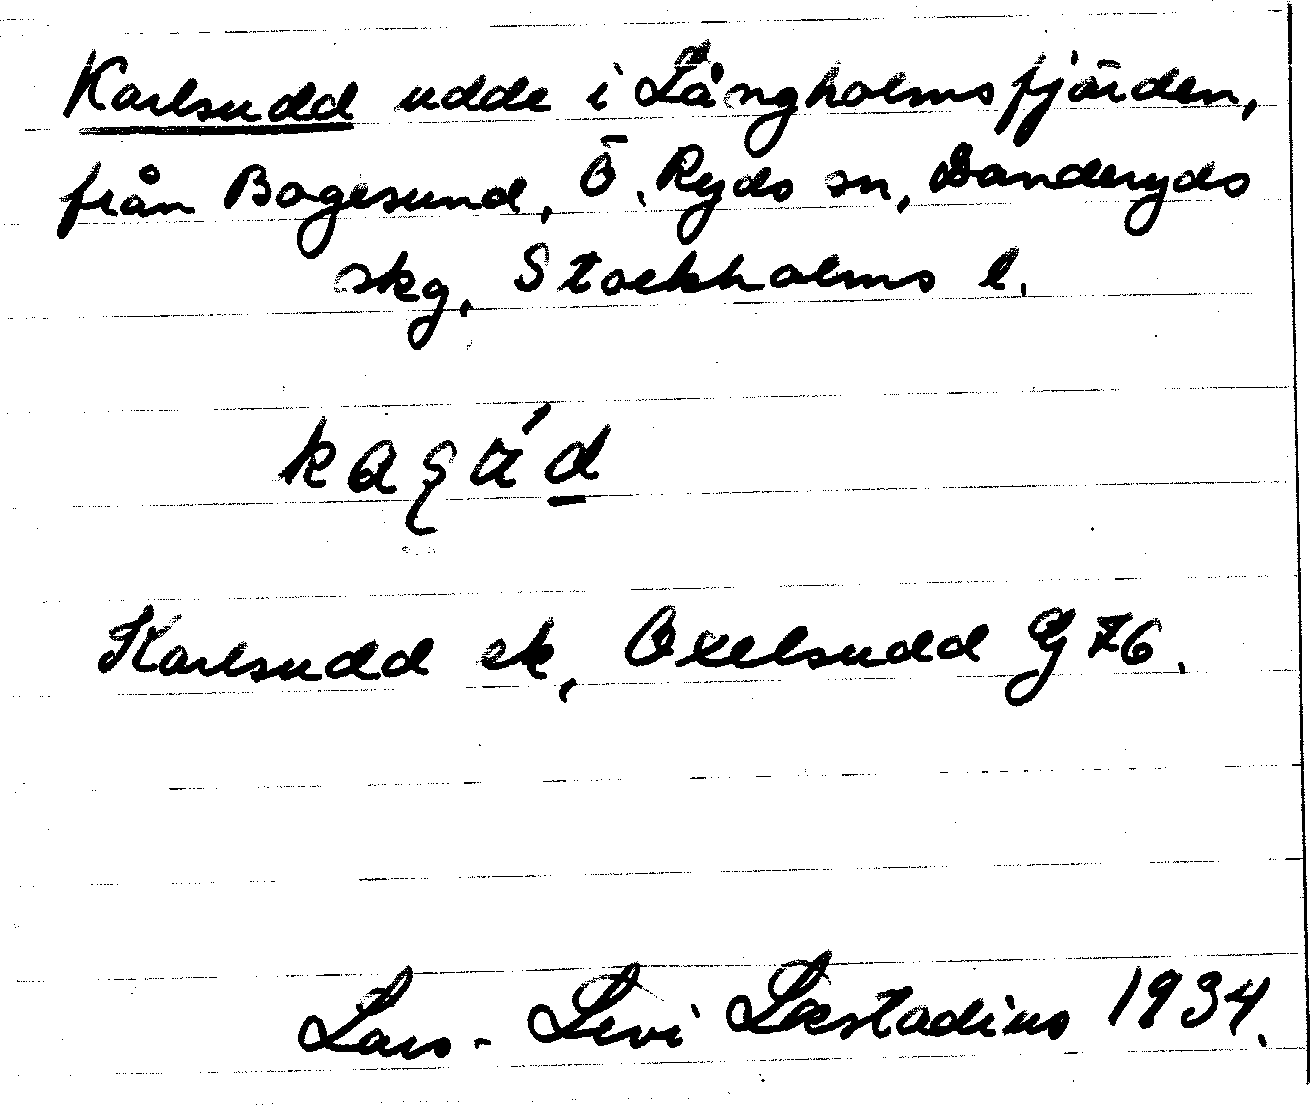 Karlsudd udde i Långholmsfjärden,
från Bogesund, Ö. Ryds sn, Danderyds
skg, Stockholms l.
Karlsudd ek, Oxelsudd Gj 76.
Lars-Levi Læstadius 1934.